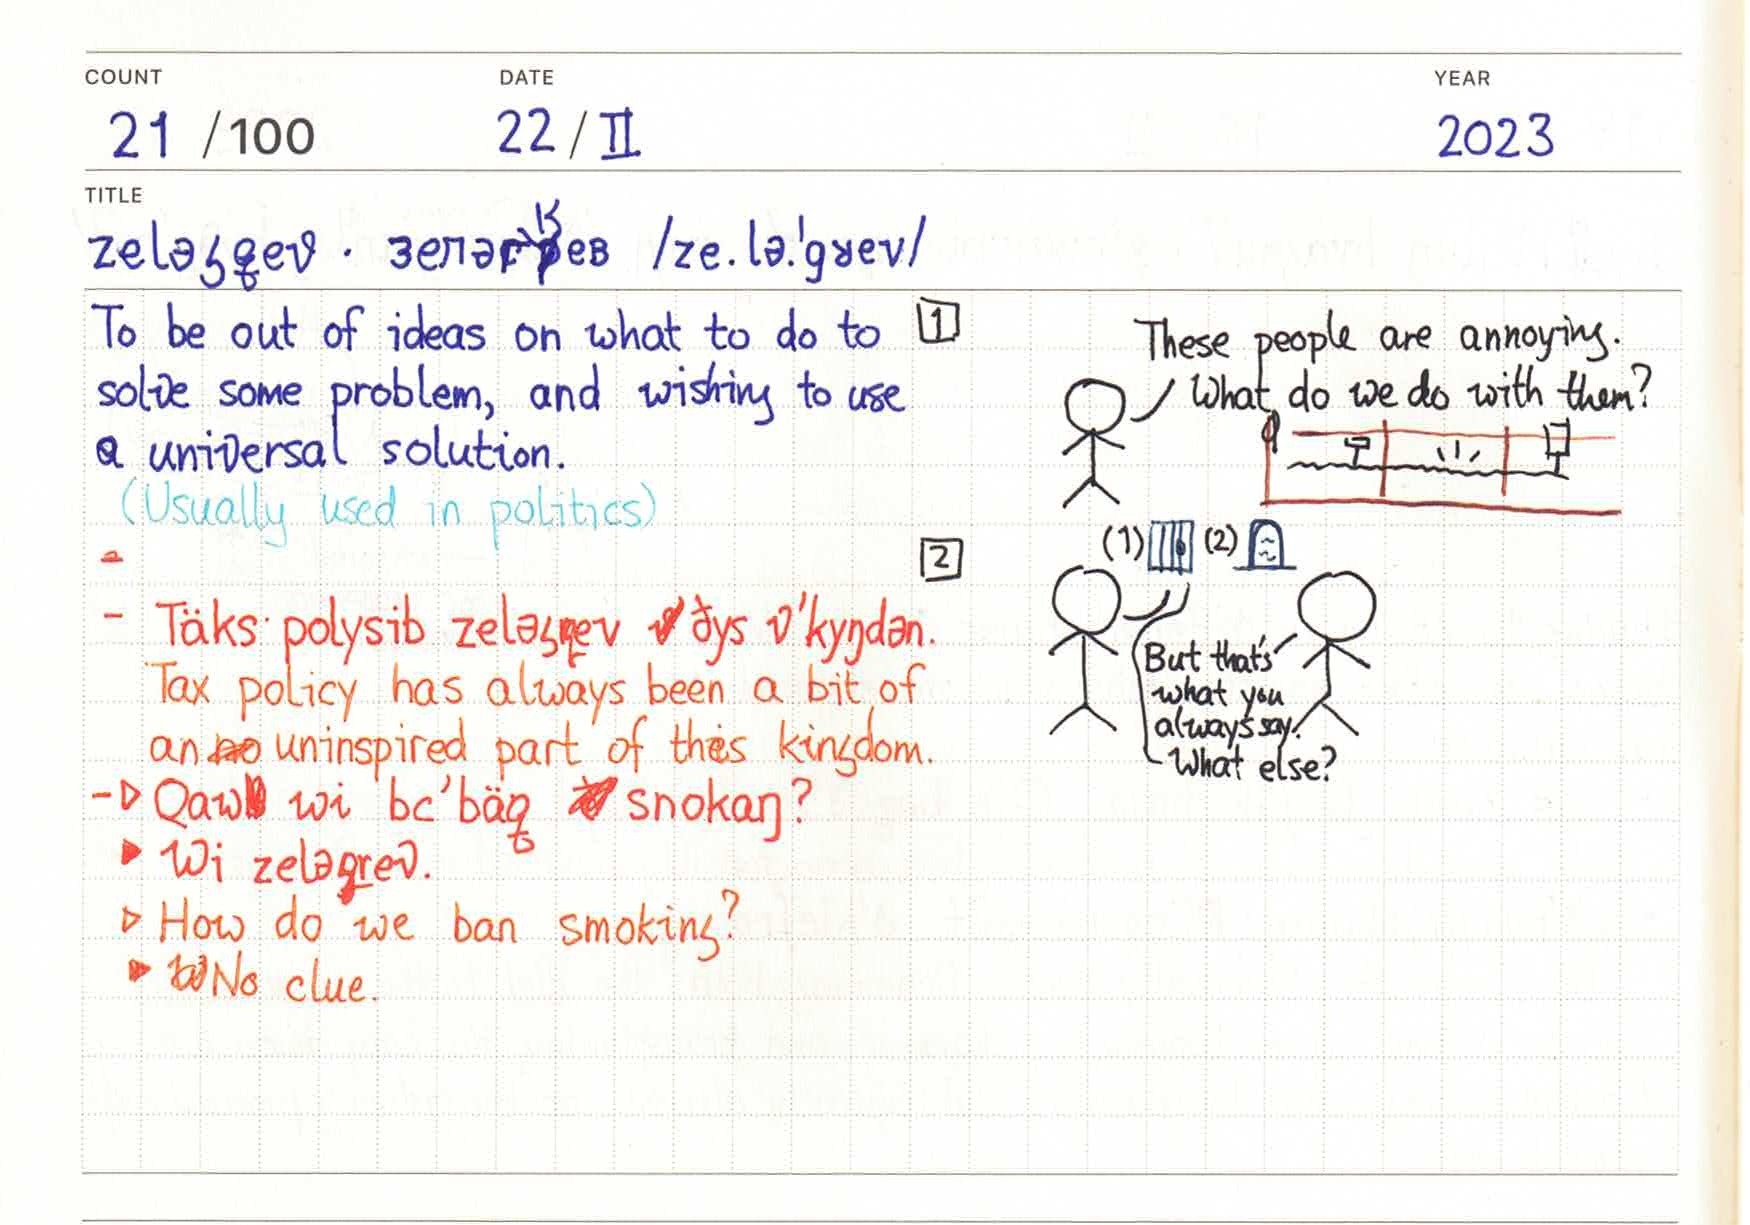 COUNT DATE YEAR
21 /100 22/II 2023
TITLE
/ze.lə.'gʁev/
To be out of ideas on what to do to
solve some problem, and wishing to use
a universal solution.
(Usually used in politics)
-
- Täks polysib ðys v'kyŋdən.
Tax policy has always been a bit of
an uninspired part of this kingdom.
-▷ wi snokaŋ?
▶ Wi zeləgrev.
▷ How do we ban smoking?
▶ No clue.
1
These people are annoying.
What do we do with them?
2
(1) (2)
But that's
what you
always say.
What else?